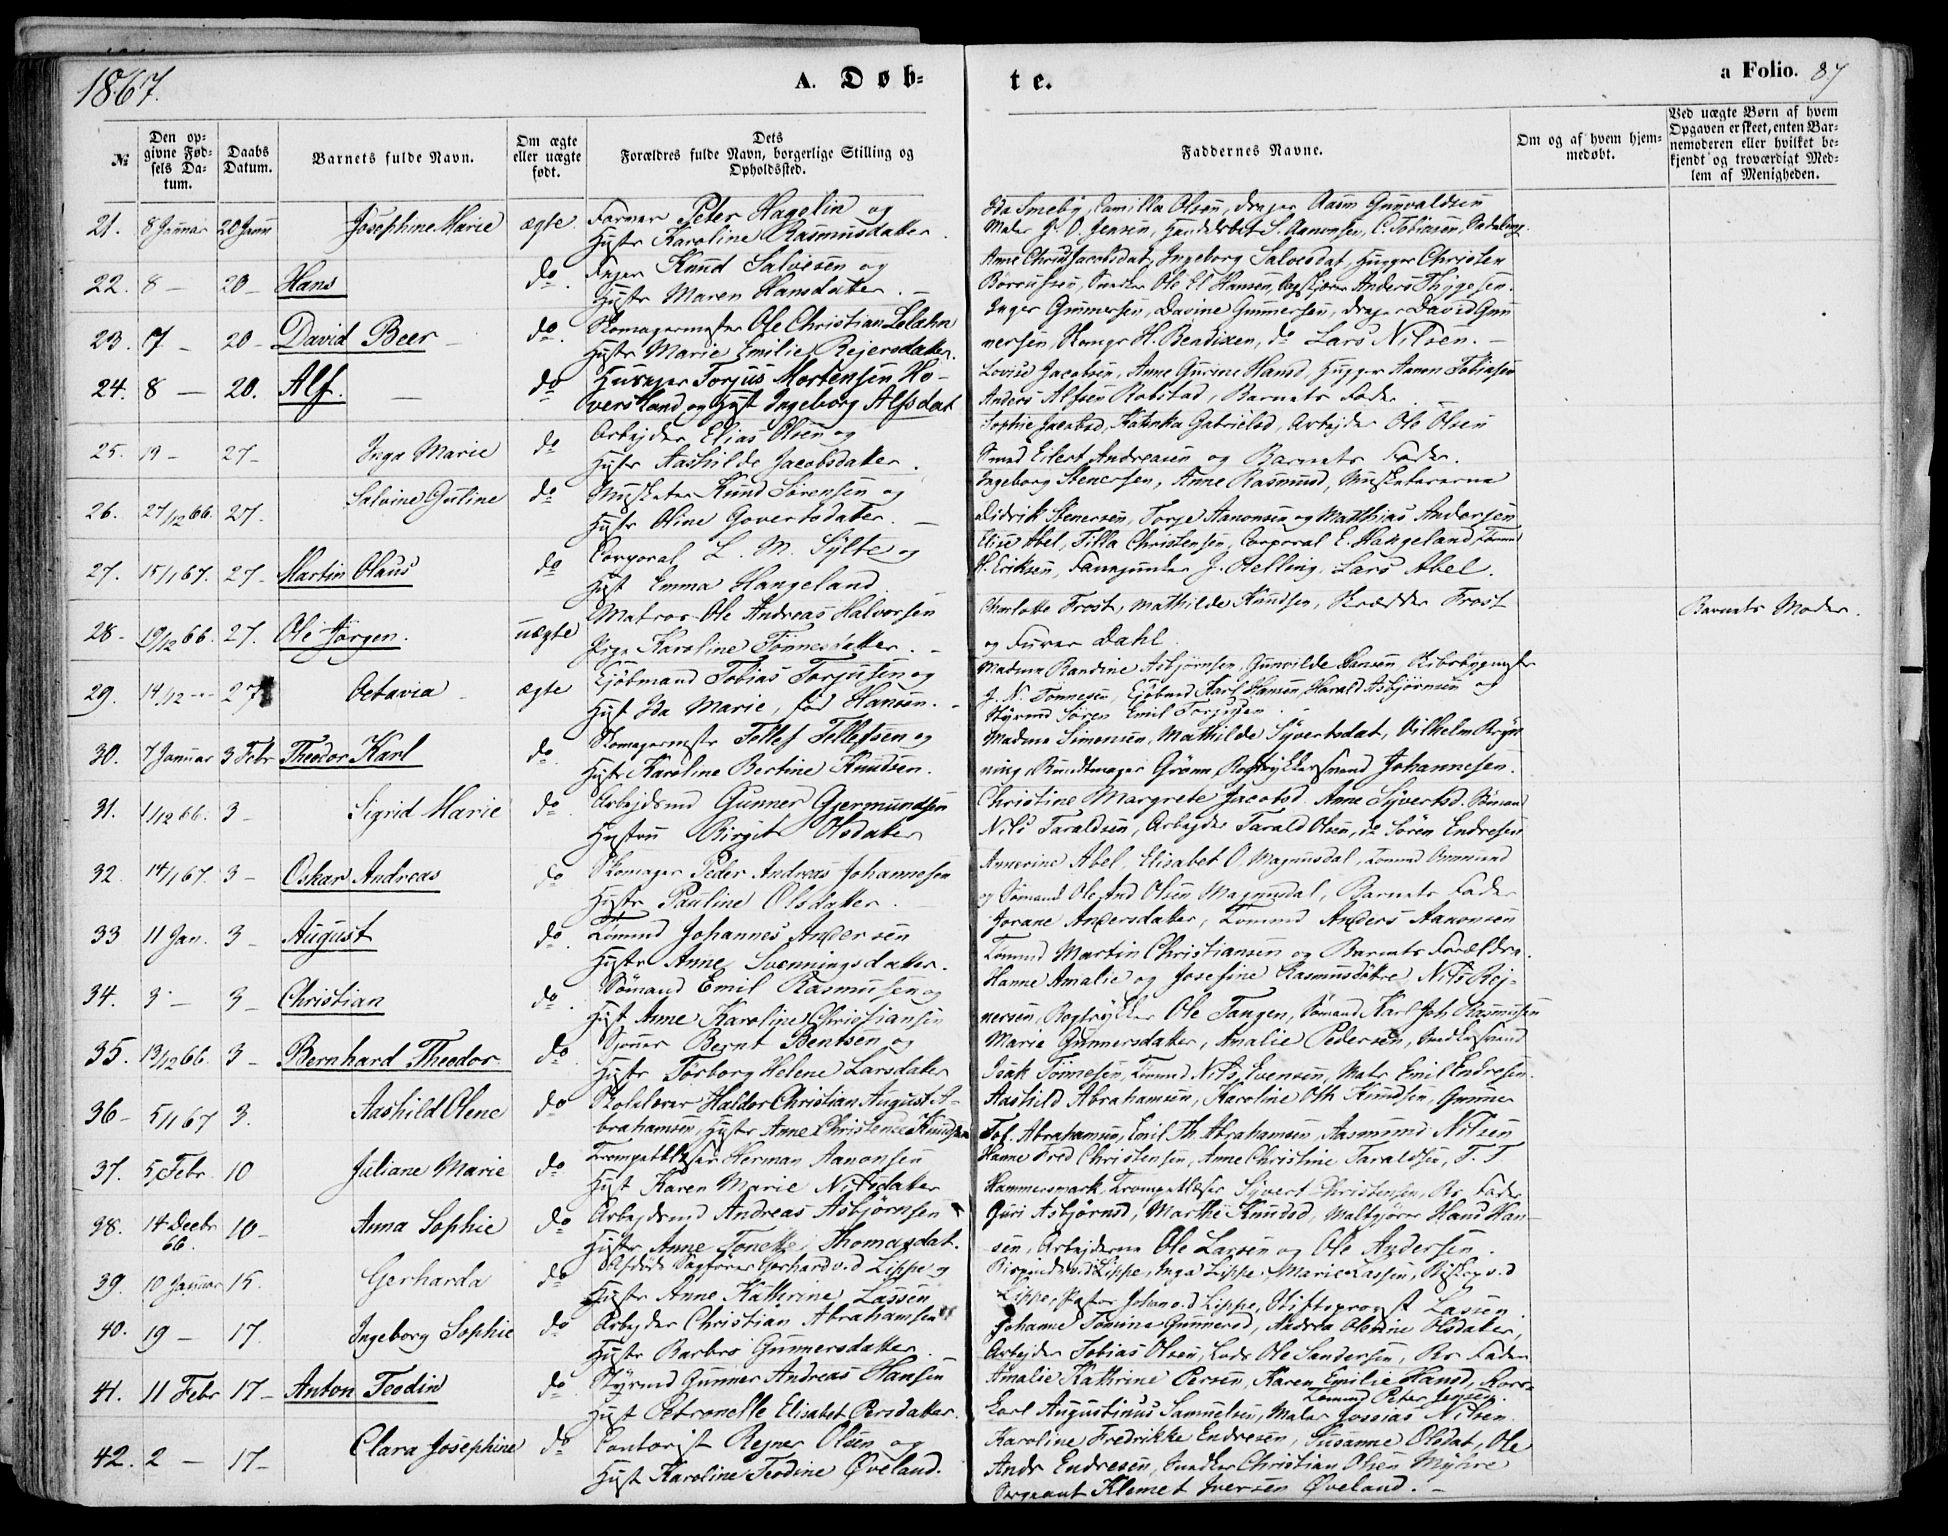 1867.
A. Døb-
te.
a Folio. 87
№
Den op-
givne Fød-
sels Da-
tum.
Daabs
Datum.
Barnets fulde Navn.
Om ægte
eller uægte
født.
Dets
Forældres fulde Navn, borgerlige Stilling og
Opholdssted.
Faddernes Navne.
Om og af hvem hjem-
medøbt.
Ved uægte Børn af hvem
Opgaven er skeet, enten Bar-
nemoderen eller hvilket be-
kjendt og troværdigt Med-
lem af Menigheden.
21. 8 Januar 20 Janu Josephine Marie ægte. Farver Peter Hagelin og
Hustr Karoline Rasmusdatter.
Ida Smeby, Camilla Olsen, Drager Aasm Gunvaldsen
Maler J. O. Jensen, S. Aanonsen, C. Tobiasen,
22. 8 – 20 – Hans do. Knud Salvesen og
Hustr Maren Hansdatter. –
Anne Christ Jacobsdat, Ingeborg Salvesdat, Hugger Christen
Ole El Hansen, Anders Thygesen.
23. 7 – 20 – David Beer – do. Skomagermester Ole Christian
Hustr Marie Emilie Rejersdatter.
Inger Gunnersen, Davine Gunnersen, Drager David Gun
nersen, H. Bendixen, do Lars Nilsen. –
24. 8 – 20. Alf. – do Torjus Mortensen Ho-
versland og Hust Ingeborg Alfsdat
Lovise Jacobsen, Anne Gurine Hansd, Hugger Aanon Tobiasen
Anders Alfsen Robstad, Barnets Fader.
25. 13 – 27 – Inga Marie do Arbejder Elias Olsen og
Hustr Aashilde Jacobsdatter.
Sophie Jacobsd, Katinka Gabrielsd, Arbejder Ole Olsen
Smed Eilert Andreasen og Barnets Fader.
26. 27/12 66. 27. Salvine Guline do Musketer Knud Sørensen og
Hustr Oline Govertsdatter. –
Ingeborg Stenersen, Anne Rasmusd, Musketererne
Didrik Stenersen, Torje Aanonsen og Matthias Andersen
27. 15/1 67. 27 – Martin Olaus do Corporal L. M. Sylte og
Hust Emma Haugeland
Elise Abel, Tilla Christensen, Corporal E. Haugeland,
H. Eriksen, Fanejunker J. Relling, Lars Abel.
28 – 19/12 66. 27. Ole Jørgen. uægte Matros Ole Andreas Halvorsen
Pige Karoline Tønnesdatter. –
Charlotte Frost, Mathilde Knudsen, Skrædder Frost
og Furer Dahl.
Barnets Moder.
29. 14/12 – 27 Octavia – ægte Kjøbmand Tobias Torjusen og
Hust Ida Marie, fød Hansen. –
Madme Randine Asbjørnsen, Gunvilde Hansen, Skibsbygmester
J. N. Tønnesen, Kjøbmd Karl Hansen, Harald Asbjørnsen og
Styrmd Søren Emil Torjusen.
30. 7 Januar 3 Febr Theodor Karl do Skomagermestr Tellef Tellefsen og
Hustr Karoline Bertine Knudsen.
Madme Simonsen, Mathilde Syvertsdat, Vilhelm Bryn
ning, Bundtmager Grønn, Johannesen.
31. 1/12 66. 3 – Sigrid Marie do Arbejdsmd Gunner Gjermundsen
Hustru Birgit Olsdatter
Christine Margrete Jacobsd. Anne Syvertsd. Sømand
Nils Taraldsen, Arbejder Tarald Olsen, do Søren Endresen
32. 14/1 67. 3 – Oskar Andreas do Skomager Peder Andreas Johannesen
Hustr Pauline Olsdatter. –
Annerine Abel, Elisabet O. Magnusdal,
og Sømand Ole And Olsen Magnusdal, Barnets Fader
33 11 Jan. 3 – August do. Tømmd Johannes Andersen
Hustr Anne Svenningsdatter.
Jorane Andersdatter, Tømmd Anders Aanonsen
Tømmd Martin Christiansen og Barnets Forældre.
34. 3 – 3 – Christian do. Sømand Emil Rasmusen og
Hust Anne Karoline Christiansen
Hanne Amalie og Josefine Rasmusdøtre, Nils Rej-
nersen, Bogtrykker Ole Tangen, Sømand Karl Joh. Rasmusen
35. 13/12 66. 3 – Bernhard Theodor do. Bernt Bentsen og
Hustr Torborg Helene Larsdatter
Marie Gunnersdatter, Amalie Pedersen,
Isak Tønnesen, Tømmd Nils Evensen, Maler Emil Endresen.
36 – 5/1 67 3. Aashild Olene do Skolelærer Haldor Christian August A-
brahamsen, Hustr Anne Christense Knudsen
Aashild Abrahamsen, Karoline Oth Knudsen, Gunner
Tol. Abrahamsen, Emil Th. Abrahamsen, Aasmund Nilsen
37. 5 Febr. 10 Juliane Marie do Trompetblæser Herman Aanonsen
Hust Karen Marie Nilsdatter
Hanne Fred Christensen, Anne Christine Taraldsen, T. T
Hammersmark, Trompetblæser Syvert Christensen, Bs Fader
38. 14 Decbr 66. 10 – Anna Sophie do Arbejdsmd Andreas Asbjørnsen
Hustr Anne Tonette Thomasdat.
Guri Asbjørnsd, Marthe Knudsd, Maltgjører Hans Han-
sen, Arbejderne Ole Larsen og Ole Andersen.
39. 10 Januar 15. Gerharda do Sagfører Gerhard v. d Lippe og
Hustr Anne Kathrine Lassen
Bispinde v. d Lippe, Inga Lippe, Marie Lassen, Biskop v. d
Lippe, Pastor Johan v. d Lippe, Stiftsprovst Lassen
40. 19 – 17. Ingeborg Sophie do Arbejder Christian Abrahamsen
Hustr Barbro Gunnersdatter.
Johanne Tomine Gunnersd, Andrea Olevine Olsdatter,
Arbejder Tobias Olsen, Lods Ole Sandersen, Bs. Fader
41. 11 Febr 17 – Anton Teodin do Styrmd Gunner Andreas Hansen
Hust Petronelle Elisabet Persdatter.
Amalie Kathrine Persen, Karen Emilie Hansd,
Tømmd Peter Jensen
Carl Augustinus Samuelsen, Maler Jossias Nilsen.
42. 2 – 17 – Clara Josephine do Contorist Rejner Olsen og
Hust Karoline Teodine Øveland.
Karoline Fredrikke Endresen, Susanne Olsdat, Ole
Andr Endresen, Snedker Christian Olsen Myhre
Sergeant Klemet Iversen Øveland. –